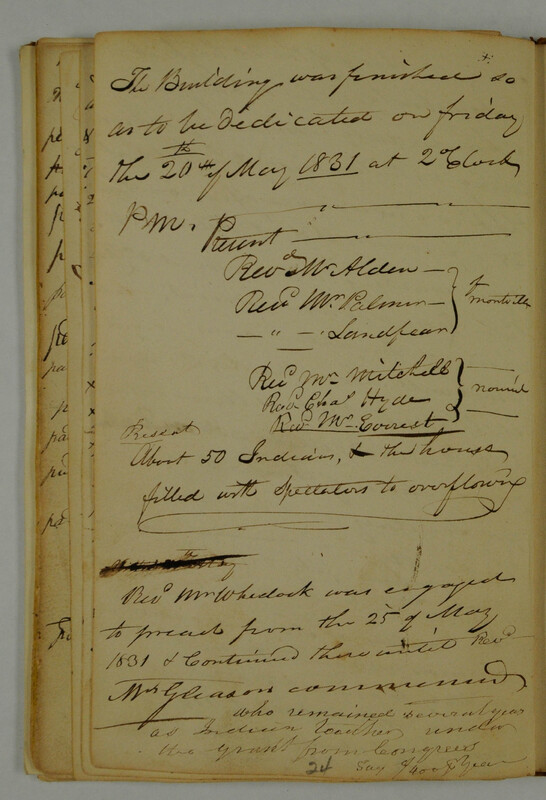 The Building was finished so
as to be dedicated on friday
the 20th of May 1831 at 2 oClock
P M. Present
Revd Mr Alden
Revd Mr Palmer
— " — " Landfear
of montville
Revd Mr Mitchell
Revd Chas Hyde
Revd Mr Everest
Present
About 50 Indians, & the house
filled with Spectators to overflowing
Revd Mr Whelock was engaged
to preach from the 25 of May
1831 & Continued there untill Revd
Mr Gleason commenced
who remained several year
as Indian teacher under
the grant from Congress
24 Say $400 $ Year